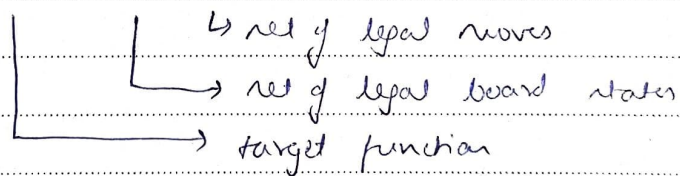 ↳ set of legal moves
→ set of legal board states
→ target function